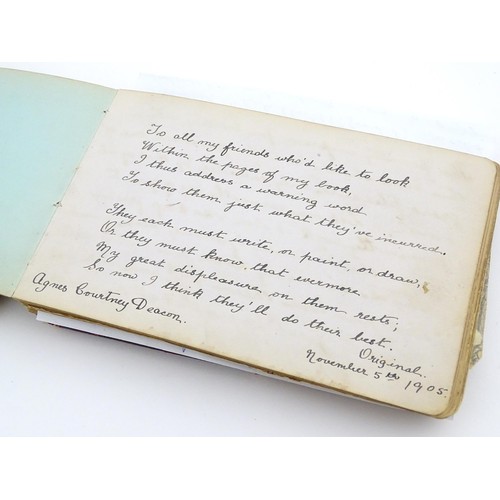 To all my friends who'd like to look
Within the pages of my book,
I thus address a warning word
To show them just what they've incurred.
They each must write, or paint, or draw,
Or they must know that evermore
My great displeasure on them rests;
So now I think they'll do their best.
Original.
Agnes Courtney Deacon.
November 5th 1905.